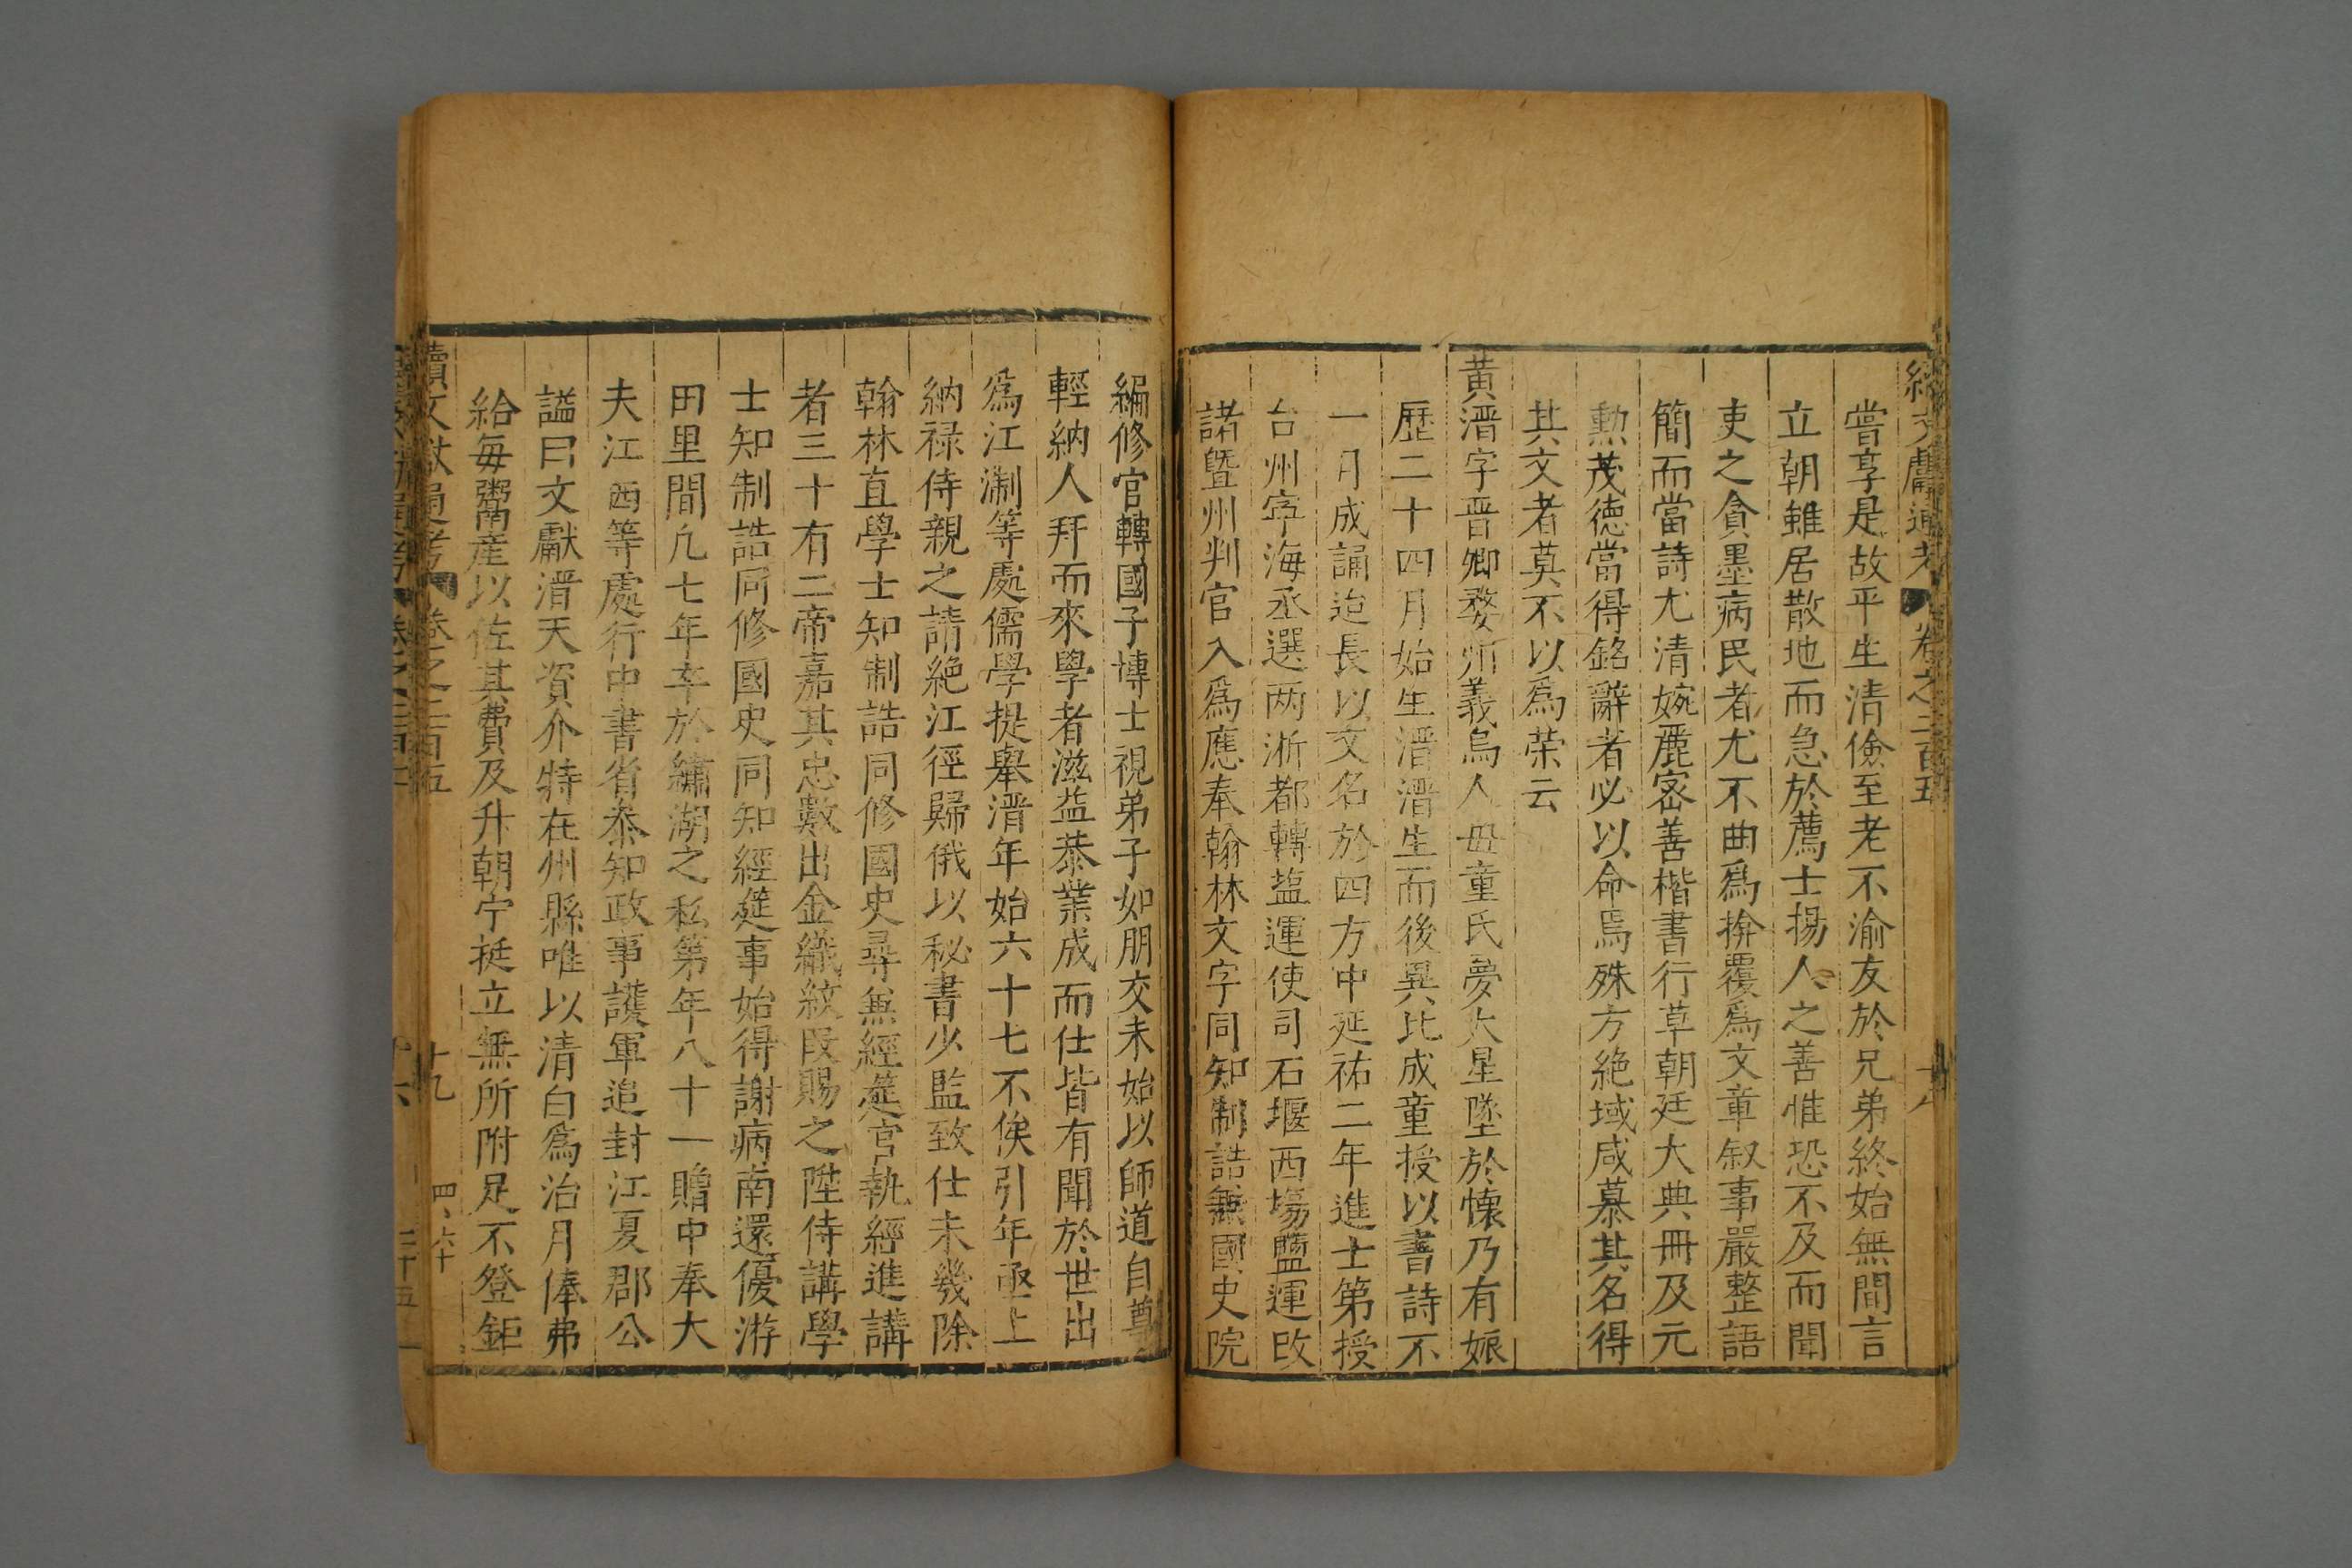 續文獻通考 卷之二百五 十八
嘗享是故平生清儉至老不渝友於兄弟終始無間言
立朝雖居散地而急於薦士揚人之善惟恐不及而聞
吏之貪墨病民者尤不曲爲揜覆爲文章叙事嚴整語
簡而當詩尤清婉麗密善楷書行草朝廷大典冊及元
勲茂德當得銘辭者必以命焉殊方絶域咸慕其名得
其文者莫不以爲荣云
黄溍字晋卿婺州義烏人母童氏夢大星墜於懐乃有娠
歴二十四月始生溍溍生而後異比成童授以書詩不
一月成誦迨長以文名於四方中延祐二年進士第授
台州寧海丞選两浙都轉塩運使司石堰西塲鹽運改
諸曁州判官入爲應奉翰林文字同知制誥無國史院
編修官轉國子博士視弟子如朋交未始以師道自尊
輕納人拜而來學者滋益恭業成而仕皆有聞於世出
爲江淛等處儒學提舉溍年始六十七不俟引年亟上
納禄侍親之請絶江徑歸俄以秘書少監致仕未幾除
翰林直學士知制誥同修國史尋無經筵官執經進講
者三十有二帝嘉其忠數出金織紋段賜之陞侍講學
士知制誥同修國史同知經筵事始得謝病南還優游
田里間凢七年卒於繡湖之私第年八十一贈中奉大
夫江西等處行中書省叅知政事護軍追封江夏郡公
謚曰文獻溍天資介特在州縣唯以清白爲治月俸弗
給毎鬻産以佐其費及升朝宁挺立無所附足不登鉅
續文獻通考 卷之二百五 十九 四、六十